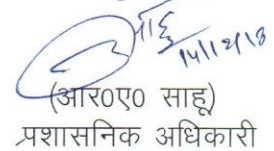 14/12/18
(आर0ए0 साहू)
प्रशासनिक अधिकारी